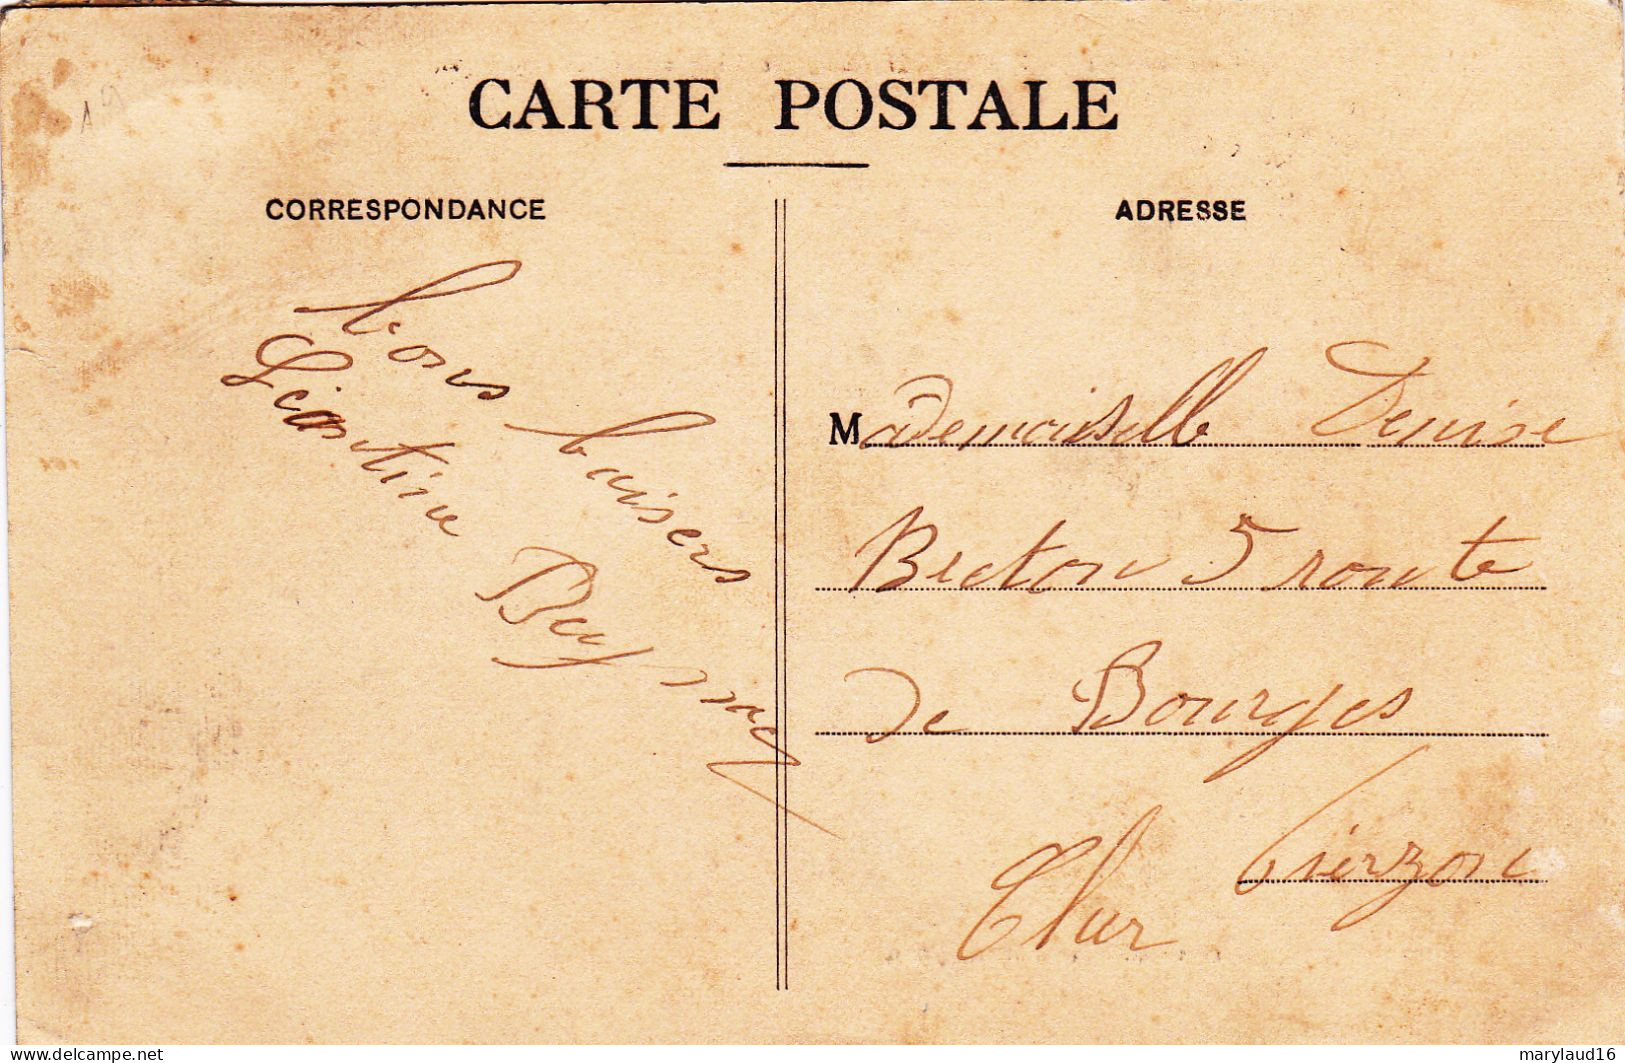 CARTE POSTALE
CORRESPONDANCE
bons baisers
Léontine
ADRESSE
Mademoiselle Denise
Breton 5 route
de Bourges
Vierzon
Cher
delcampe.net
marylaud16